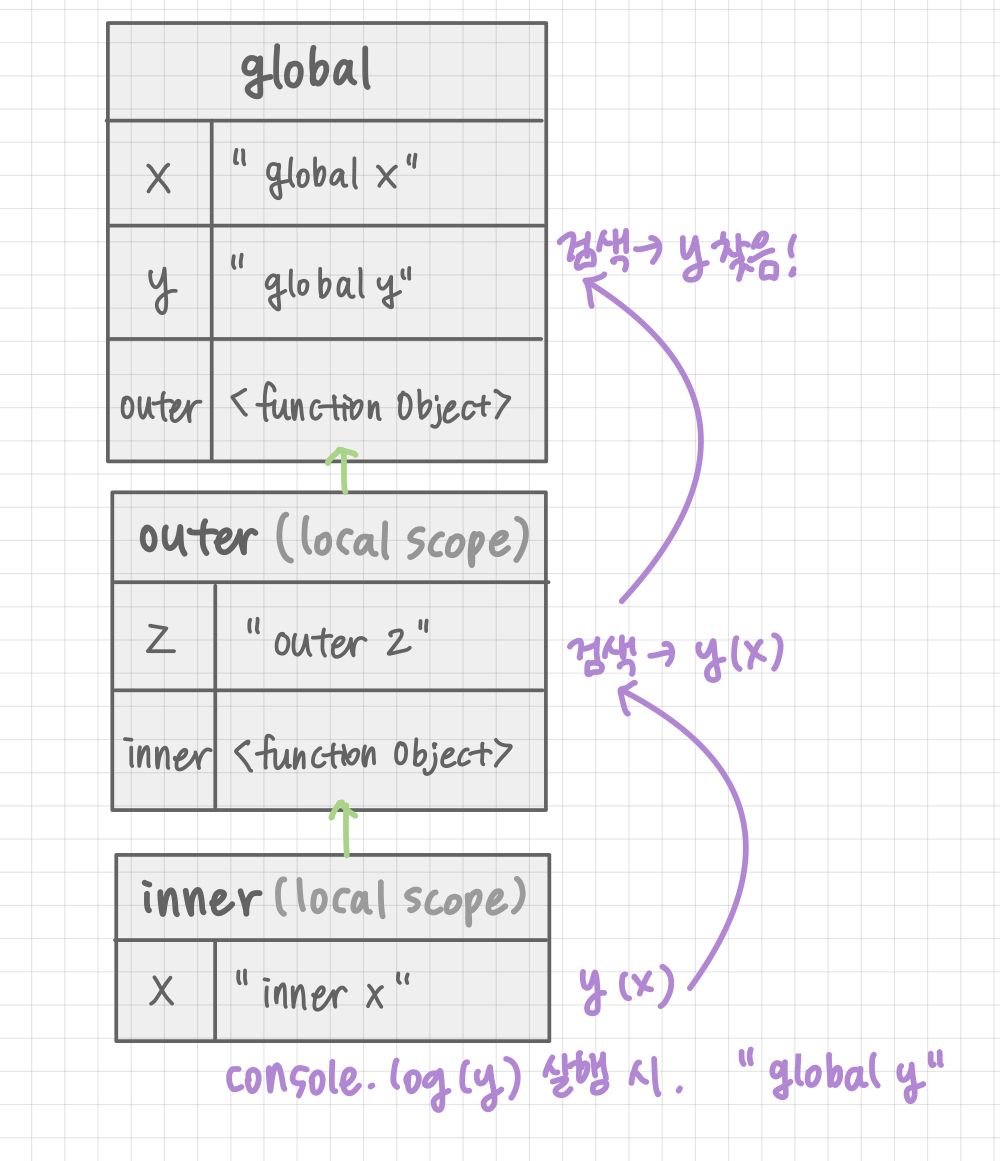 global
x " global x "
y " global y"
검색→ y 찾음!
outer <function Object>
outer (local scope)
z " outer z "
검색→ y(x)
inner <function Object>
inner (local scope)
x " inner x "
y (x)
console.log(y) 실행 시. "global y"